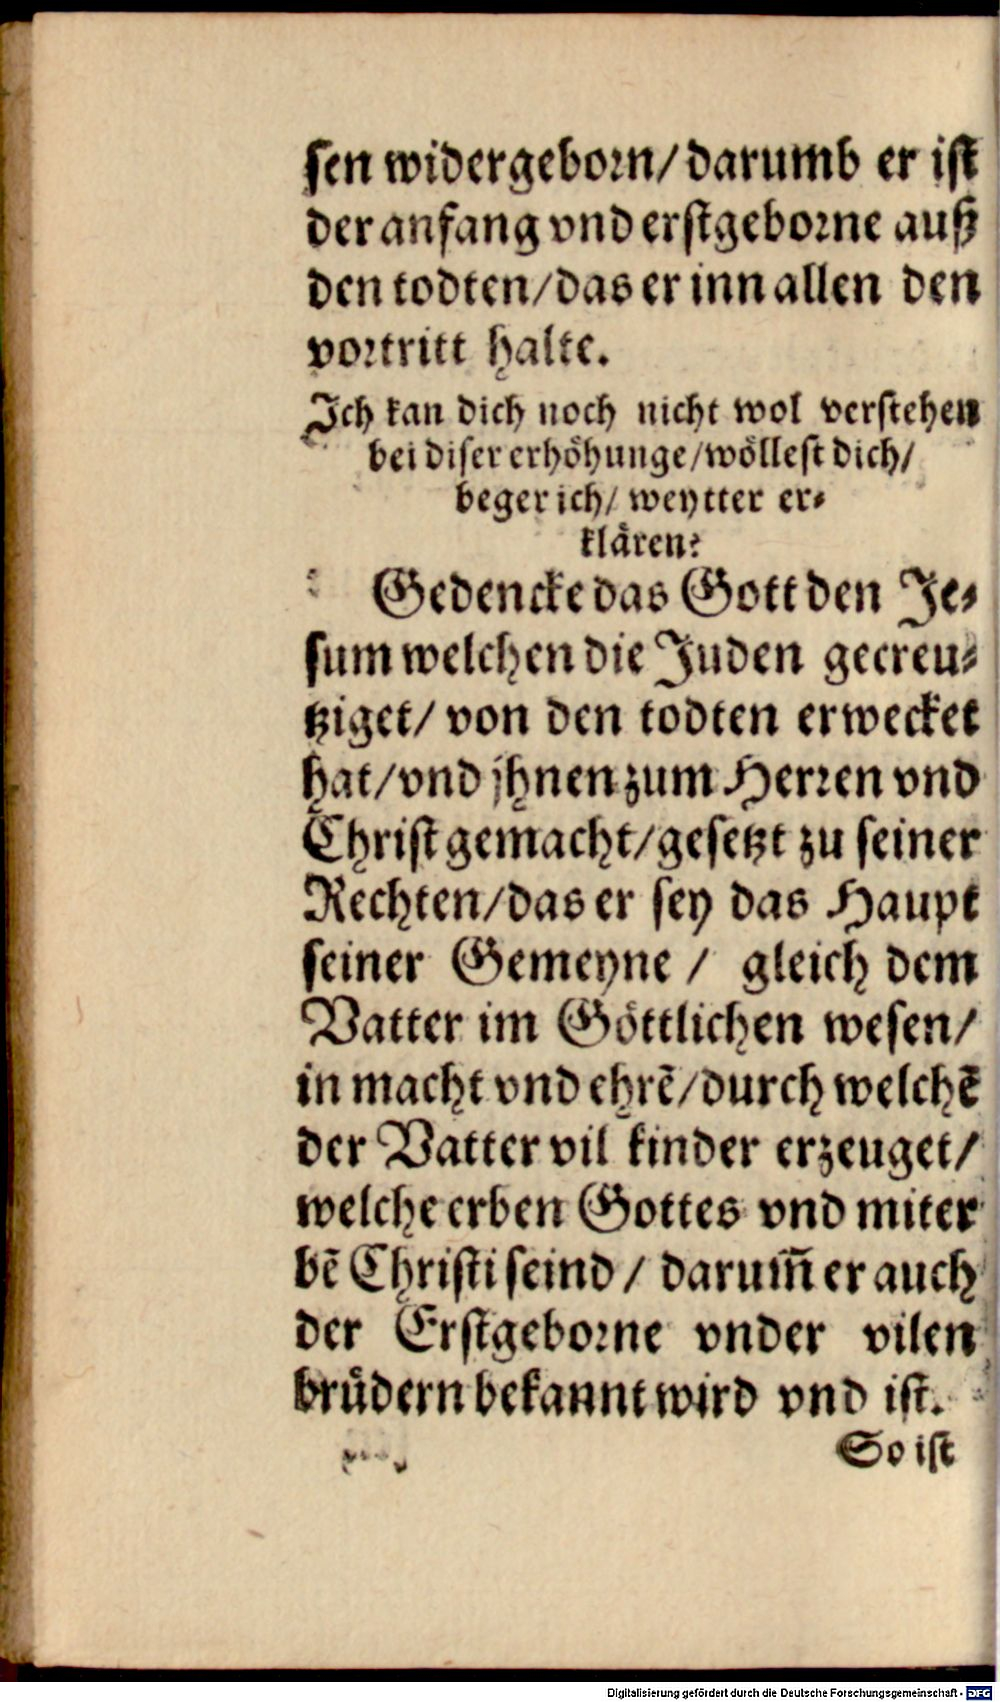 sen widergeborn/ darumb er ist
der anfang vnd erstgeborne auß
den todten/ das er inn allen den
vortritt halte.
Ich kan dich noch nicht wol verstehen
bei diser erhöhunge/ wöllest dich/
beger ich/ weytter er⸗
klären?
Gedencke das Gott den Je⸗
sum welchen die Juden gecreu⸗
tziget/ von den todten erwecket
hat/ vnd jhnen zum Herren vnd
Christ gemacht/ gesetzt zu seiner
Rechten/ das er sey das Haupt
seiner Gemeyne / gleich dem
Vatter im Göttlichen wesen/
in macht vnd ehrē/ durch welchē
der Vatter vil kinder erzeuget/
welche erben Gottes vnd miter
bē Christi seind / darum̄ er auch
der Erstgeborne vnder vilen
brüdern bekannt wird vnd ist.
So ist
Digitalisierung gefördert durch die Deutsche Forschungsgemeinschaft - DFG